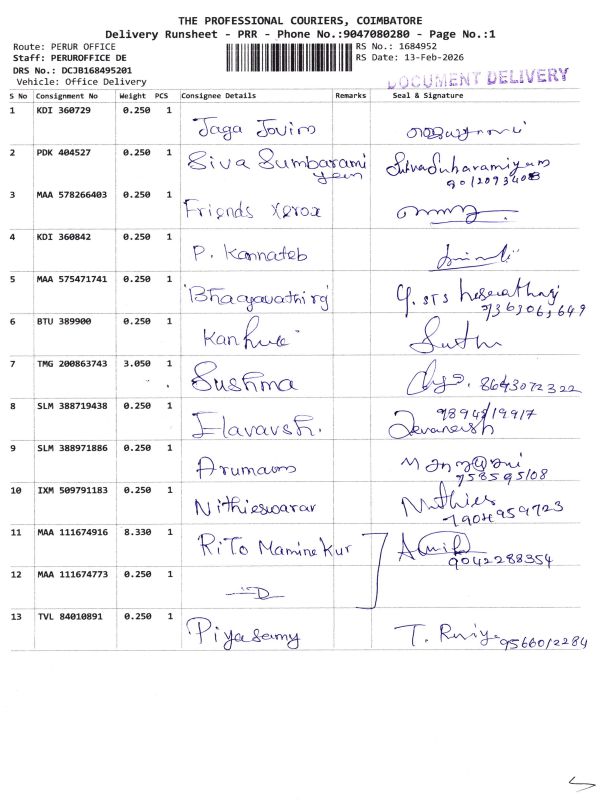 THE PROFESSIONAL COURIERS, COIMBATORE
Delivery Runsheet - PRR - Phone No.:9047080280 - Page No.:1
Route: PERUR OFFICE
Staff: PERUROFFICE DE
DRS No.: DCJB168495201
Vehicle: Office Delivery
RS No.: 1684952
RS Date: 13-Feb-2026
DOCUMENT DELIVERY
S No Consignment No Weight PCS Consignee Details Remarks Seal & Signature
1 KDI 360729 0.250 1 Jaga Jovim
2 PDK 404527 0.250 1 Siva Sumbarami yam
3 MAA 578266403 0.250 1 Friends Xerox
4 KDI 360842 0.250 1 P. Kannateb
5 MAA 575471741 0.250 1 Bhagavathi
9363063649
6 BTU 389900 0.250 1
7 TMG 200863743 3.050 1 Sushma 8643072322
8 SLM 388719438 0.250 1
9 SLM 388971886 0.250 1
10 IXM 509791183 0.250 1 Nithieswarar
7904959723
11 MAA 111674916 8.330 1 RiTo Mamine Kur
9042288354
12 MAA 111674773 0.250 1
13 TVL 84010891 0.250 1 Piyasamy T. 9566012284